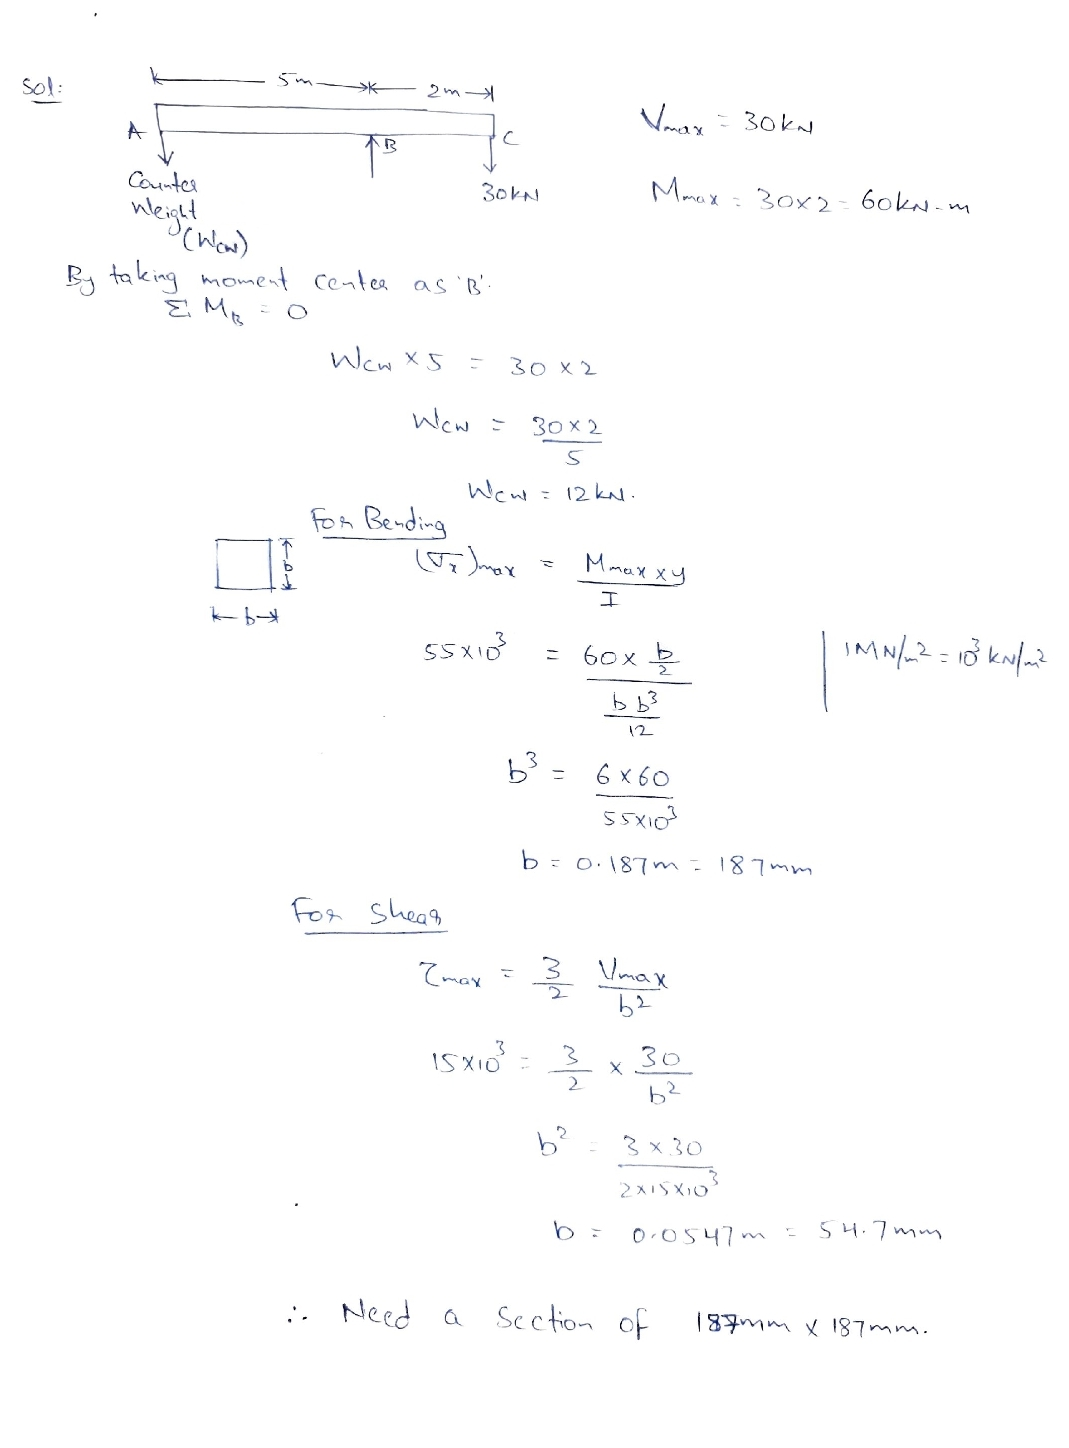 Sol:
5m 2m
A B C
Counter
Weight
(Wcw)
30kN
Vmax = 30kN
Mmax = 30×2 = 60kN-m
By taking moment center as 'B'.
Σ MB = 0
Wcw × 5 = 30 × 2
Wcw = 30×2 / 5
Wcw = 12 kN.
For Bending
b
b
(σx)max = Mmax × y / I
55×10³ = 60 × b/2 / (b b³ / 12)
1MN/m² = 10³ kN/m²
b³ = 6×60 / 55×10³
b = 0.187m = 187mm
For Shear
τmax = 3/2 Vmax/b²
15×10³ = 3/2 × 30/b²
b² = 3×30 / 2×15×10³
b = 0.0547m = 54.7mm
∴ Need a Section of 187mm × 187mm.